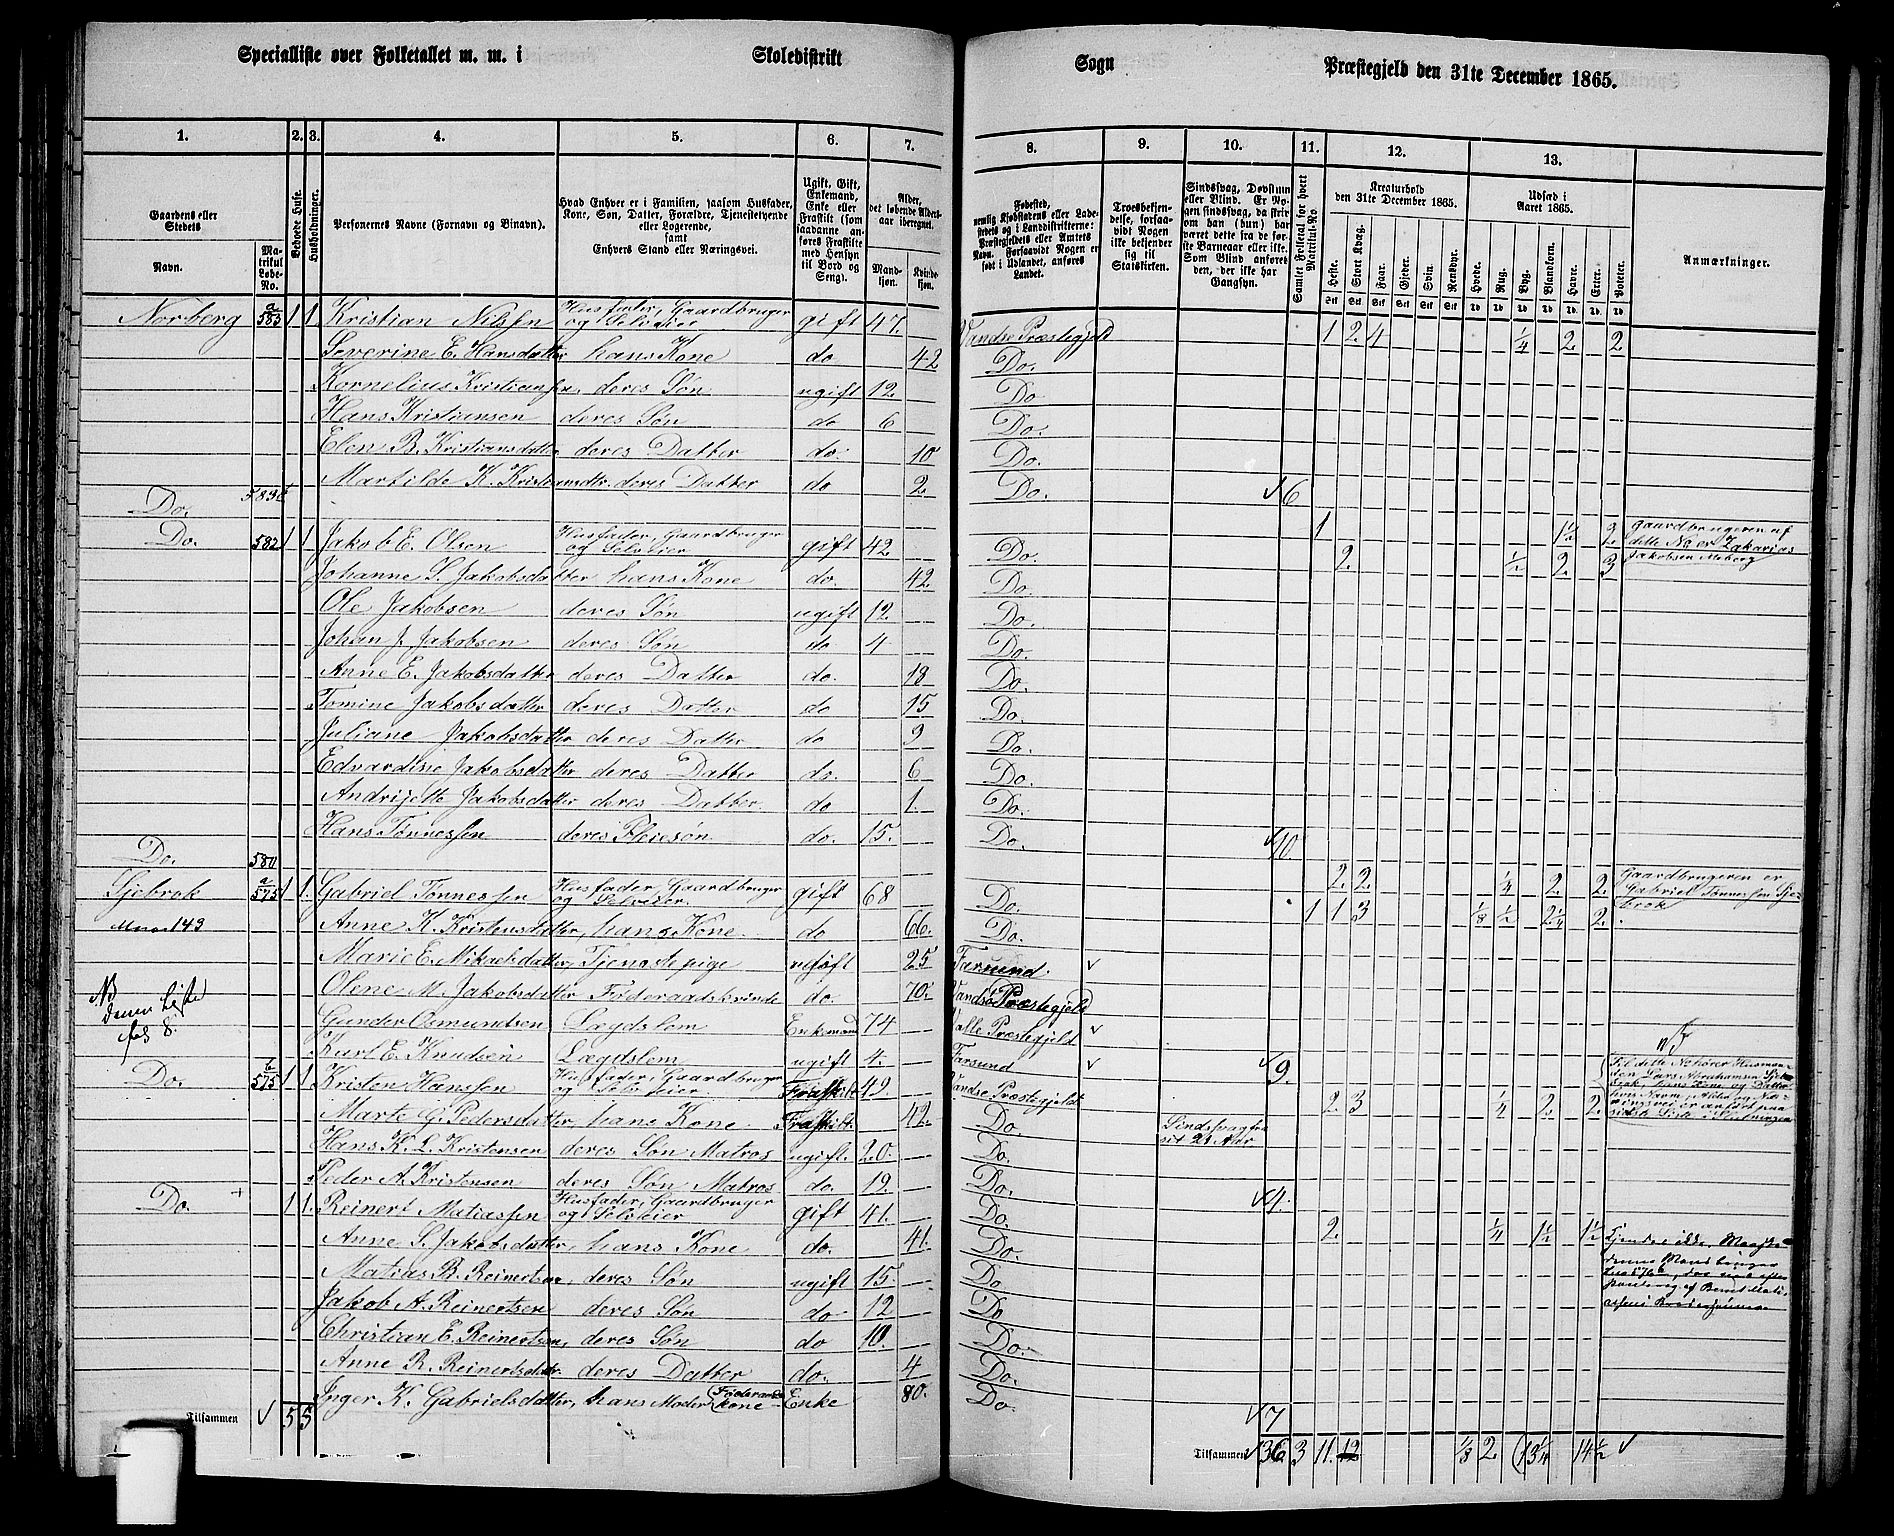 Specialliste over Folketallet m. m. i Skoledistrikt Sogn Præstegjeld den 31te December 1865.
1. 2. 3. 4. 5. 6. 7. 8. 9. 10. 11. 12. 13.
Gaardens eller Stedets Navn. Matrikul Løbe-No. Beboede Huse. Husholdninger. Personernes Navne (Fornavn og Binavn).
Hvad Enhver er i Familien, saasom Husfader, Kone, Søn, Datter, Forældre, Tjenestetyende eller Logerende, samt Enhvers Stand eller Næringsvei.
Ugift, Gift, Enkemand, Enke eller Fraskilt (som saadanne anføres Fraskilte med Hensyn til Bord og Seng).
Alder, det løbende Aldersaar iberegnet. Mandkjøn. Kvindekjøn.
Fødested, nemlig Kjøbstadens eller Ladestedets og i Landdistrikterne: Præstegjeldets eller Amtets Navn. Forsaavidt Nogen er født i Udlandet, anføres Landet.
Troesbekjendelse, forsaavidt Nogen ikke bekjender sig til Statskirken.
Sindssvag, Døvstum eller Blind. Er Nogen sindssvag, da skrives om han (hun) har været dette fra de første Barneaar eller ikke. Som Blind anføres den, der ikke har Gangsyn.
Samlet Folketal for hvert Matrikul-No.
Kreaturhold den 31te December 1865. Heste. Stort Kvæg. Faar. Gjeder. Svin. Rensdyr.
Udsæd i Aaret 1865. Hvede. Rug. Byg. Blandkorn. Havre. Erter. Poteter.
Anmærkninger.
Norberg 583 a 1 1 Kristian Nilsen Husfader, Gaardbruger og Selveier gift 47. Vandsø Præstegjeld 1 2 4 1/4 2 2
Severine E. Hansdatter hans Kone do 42 Do.
Kornelius Kristiansen, deres Søn ugift 12 Do
Hans Kristiansen deres Søn do 6 Do.
Elen B. Kristiansdatter deres Datter do. 10 Do.
Martilde K. Kristiansdtr. deres Datter do 2. Do. 6
Do. 583 1 1½ 2 Gaardbrugeren af dette No er Zakarias Jakobsen
Do. 582 1 1 Jakob E. Olsen Husfader, Gaardbruger og Selveier gift 42. Do. 2. ½ 2. 3
Johanne S. Jakobsdatter hans Kone do. 42. Do.
Ole Jakobsen deres Søn ugift 12 Do.
Johan J. Jakobsen deres Søn do 4 Do.
Anne E. Jakobsdatter deres Datter do. 18 Do.
Tomine Jakobsdatter deres Datter do 15 Do.
Juliane Jakobsdatter deres Datter do 9 Do.
Edvardine Jakobsdatter deres Datter do. 6 Do.
Andrijette Jakobsdatter deres Datter do 1. Do.
Hans Tønnessen deres Pleiesøn do. 15. Do. 10
Do. 580 2. 2. ¼ 2. 2. Gaardbrugeren er Gabriel Tønnessen Sjebrok
Sjebrok 575 a 1 1. Gabriel Tønnessen Husfader, Gaardbruger og Selveier. gift 68 Do. 1 1 3 1/8 ½ 2¼ 2.
149 Anne K. Kristensdatter, hans Kone do 66. Do.
Marie E. Mikaelsdatter, Tjenestepige ugift 25 Farsund.
NB denne Liste fol 8. Olene M. Jakobsdatter Føderaadskvinde do. 70. Vandsø Præstegjeld
Gunder Osmundsen Lægdslem Enkemand 74 Valle Præstegjeld
Karl E. Knudsen Lægdslem ugift 4. Farsund 9.
Do. 575 b 1 1 Kristen Hanssen Husfader, Gaardbruger og Selveier Fraskilt 49. Vandsø Præstegjeldt 2. 3 ¼ 2. 2 Til dette No hører Husmanden Lars Abrahamsen Sjebrok, hans Kone og Datter
Marte G. Pedersdatter, hans Kone Fraskilt. 42. Do. Sindssvag fra sit 21 Aar
Hans K. L. Kristensen deres Søn Matros ugift. 20. Do.
Peder A. Kristensen deres Søn Matros do. 19. Do. 4.
Do. 1 1. Reinert Matiassen Husfader, Gaardbruger og Selveier gift 41. Do. 2. ¼ 1½ 1½
Anne S. Jakobsdatter, hans Kone do. 41. Do.
Matias B. Reinertsen, deres Søn ugift 15 Do
Jakob A. Reinertsen deres Søn do 12 Do
Christian E. Reinertsen, deres Søn do 10. Do.
Anne R. Reinertsdatter. deres Datter do. 4 Do.
Inger K. Gabrielsdatter, hans Moder Føderaadskone Enke 80. Do 7
Tilsammen 5 5 Tilsammen 36 3 11. 12 1/8 2. 13¼ 14½